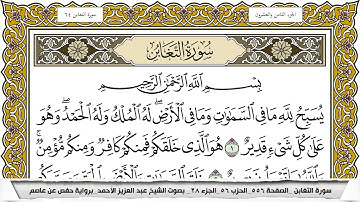 الجزء الثامن والعشرون
سورة التغابن ٦٤
سُورَةُ التَّغَابُنِ
بِسْمِ اللَّهِ الرَّحْمَٰنِ الرَّحِيمِ
يُسَبِّحُ لِلَّهِ مَا فِي السَّمَاوَاتِ وَمَا فِي الْأَرْضِ ۖ لَهُ الْمُلْكُ وَلَهُ الْحَمْدُ ۖ وَهُوَ
عَلَىٰ كُلِّ شَيْءٍ قَدِيرٌ ١ هُوَ الَّذِي خَلَقَكُمْ فَمِنكُمْ كَافِرٌ وَمِنكُم مُّؤْمِنٌ ۚ
سورة التغابن _الصفحة ٥٥٦_ الحزب ٥٦_ الجزء ٢٨_ بصوت الشيخ عبد العزيز الأحمد_برواية حفص عن عاصم